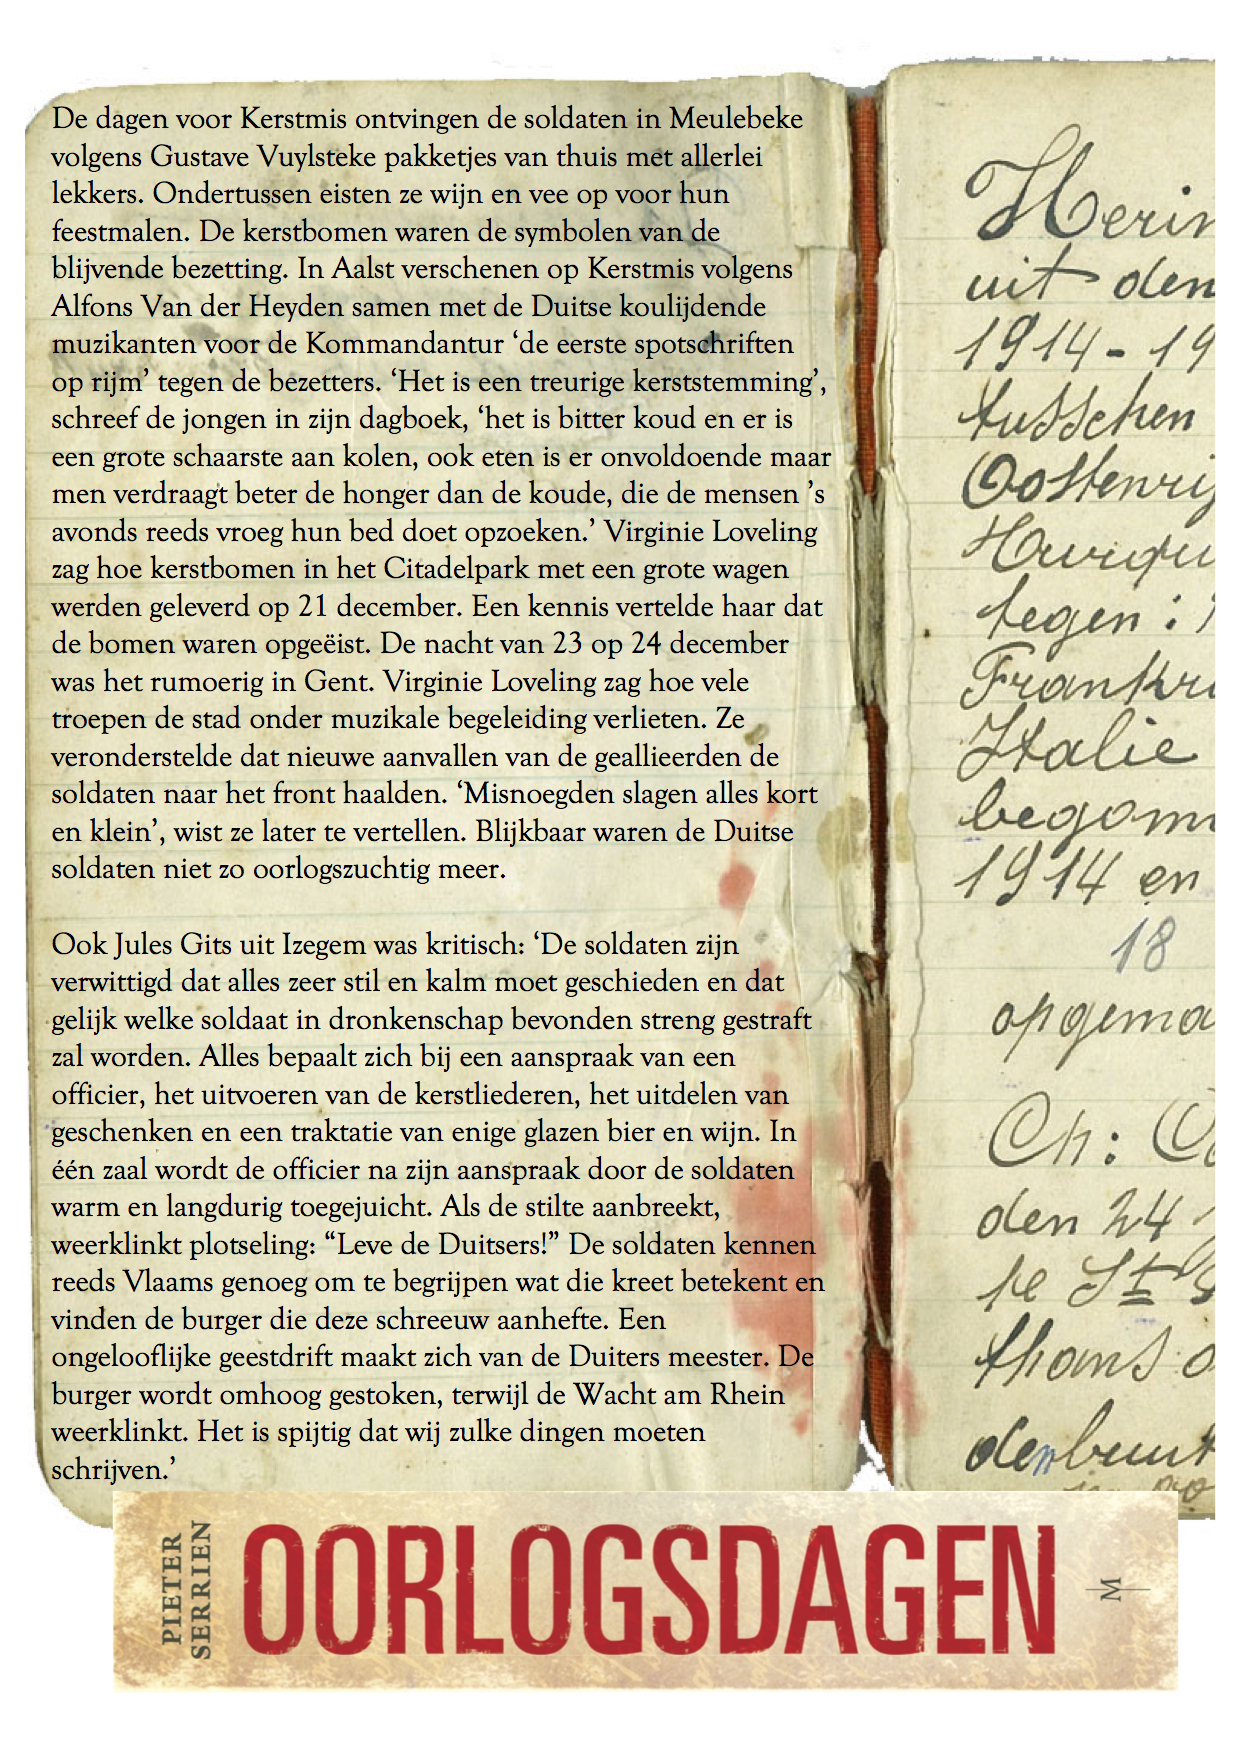 De dagen voor Kerstmis ontvingen de soldaten in Meulebeke
volgens Gustave Vuylsteke pakketjes van thuis met allerlei
lekkers. Ondertussen eisten ze wijn en vee op voor hun
feestmalen. De kerstbomen waren de symbolen van de
blijvende bezetting. In Aalst verschenen op Kerstmis volgens
Alfons Van der Heyden samen met de Duitse koulijdende
muzikanten voor de Kommandantur ‘de eerste spotschriften
op rijm’ tegen de bezetters. ‘Het is een treurige kerststemming’,
schreef de jongen in zijn dagboek, ‘het is bitter koud en er is
een grote schaarste aan kolen, ook eten is er onvoldoende maar
men verdraagt beter de honger dan de koude, die de mensen ’s
avonds reeds vroeg hun bed doet opzoeken.’ Virginie Loveling
zag hoe kerstbomen in het Citadelpark met een grote wagen
werden geleverd op 21 december. Een kennis vertelde haar dat
de bomen waren opgeëist. De nacht van 23 op 24 december
was het rumoerig in Gent. Virginie Loveling zag hoe vele
troepen de stad onder muzikale begeleiding verlieten. Ze
veronderstelde dat nieuwe aanvallen van de geallieerden de
soldaten naar het front haalden. ‘Misnoegden slagen alles kort
en klein’, wist ze later te vertellen. Blijkbaar waren de Duitse
soldaten niet zo oorlogszuchtig meer.
Ook Jules Gits uit Izegem was kritisch: ‘De soldaten zijn
verwittigd dat alles zeer stil en kalm moet geschieden en dat
gelijk welke soldaat in dronkenschap bevonden streng gestraft
zal worden. Alles bepaalt zich bij een aanspraak van een
officier, het uitvoeren van de kerstliederen, het uitdelen van
geschenken en een traktatie van enige glazen bier en wijn. In
één zaal wordt de officier na zijn aanspraak door de soldaten
warm en langdurig toegejuicht. Als de stilte aanbreekt,
weerklinkt plotseling: “Leve de Duitsers!” De soldaten kennen
reeds Vlaams genoeg om te begrijpen wat die kreet betekent en
vinden de burger die deze schreeuw aanhefte. Een
ongelooflijke geestdrift maakt zich van de Duiters meester. De
burger wordt omhoog gestoken, terwijl de Wacht am Rhein
weerklinkt. Het is spijtig dat wij zulke dingen moeten
schrijven.’
Herin
uit den
1914-19
tusschen
Oostenrij
tegen :
Frankri
Italie
1914 en
18
opgema
Ch:
den 24
PIETER
SERRIEN
OORLOGSDAGEN
M